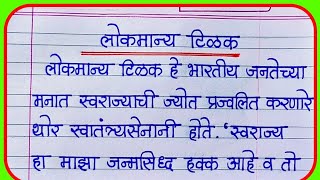 लोकमान्य टिळक
लोकमान्य टिळक हे भारतीय जनतेच्या
मनात स्वराज्याची ज्योत प्रज्वलित करणारे
थोर स्वातंत्र्यसेनानी होते. 'स्वराज्य
हा माझा जन्मसिध्द हक्क आहे व तो